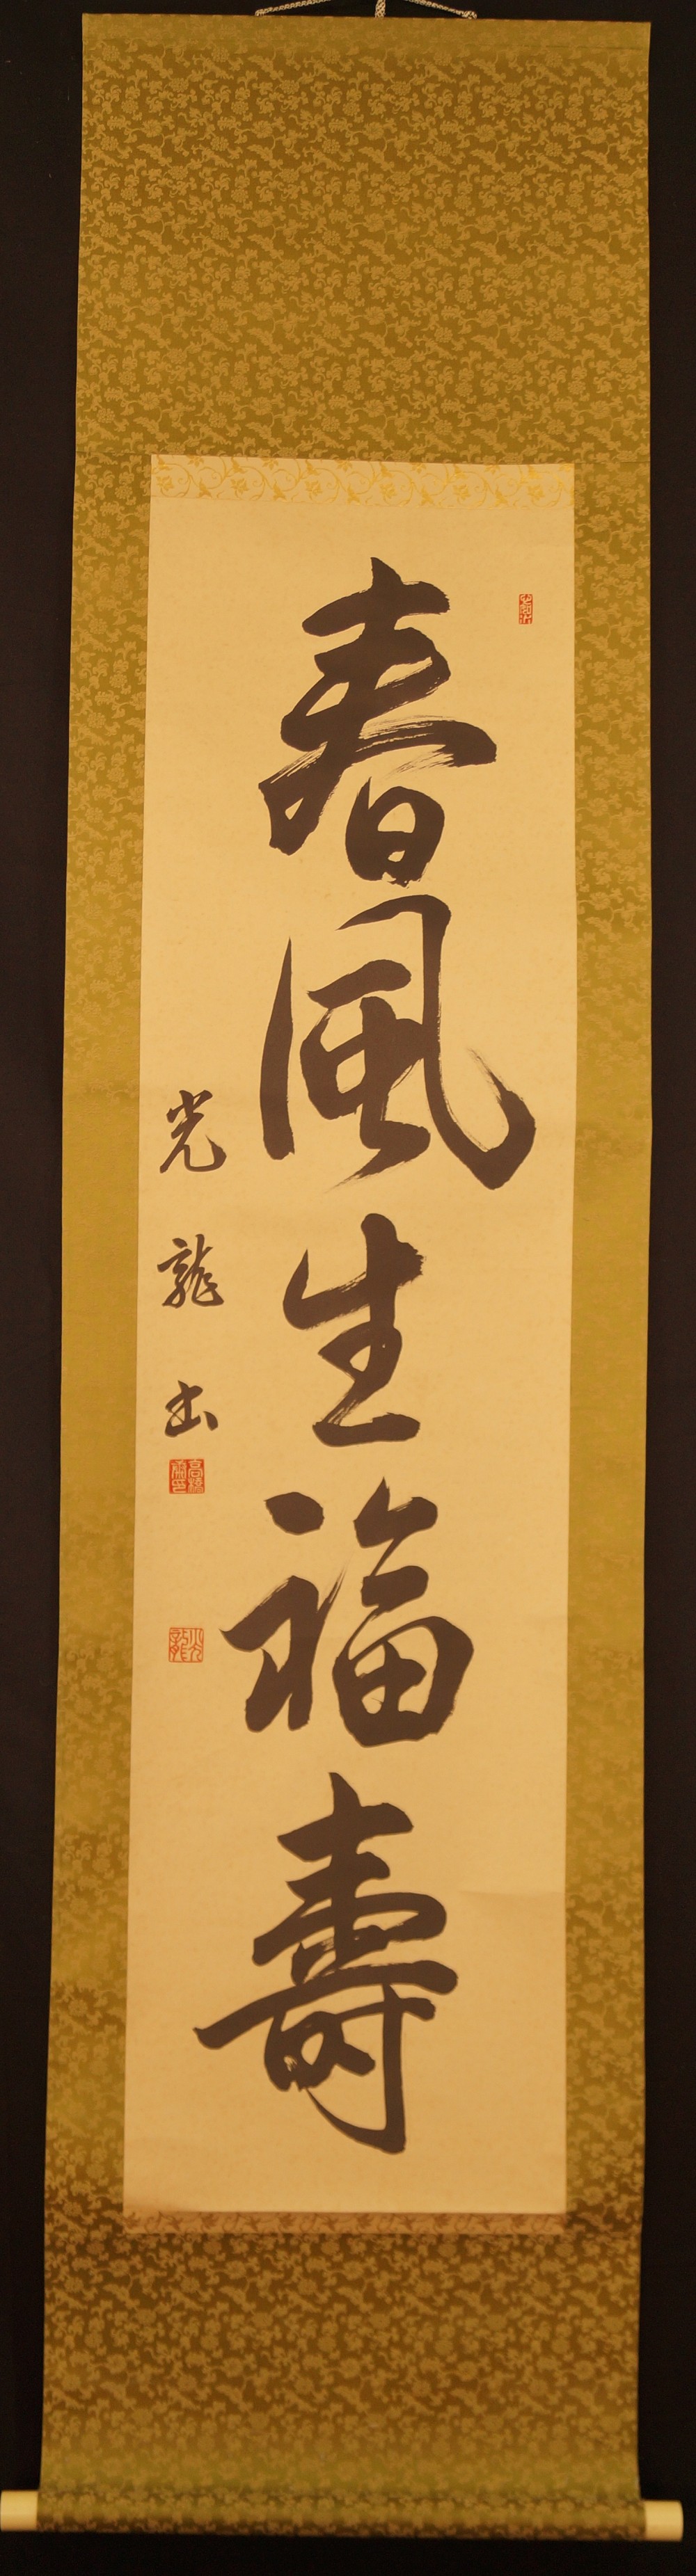 春風生福壽
光龍書